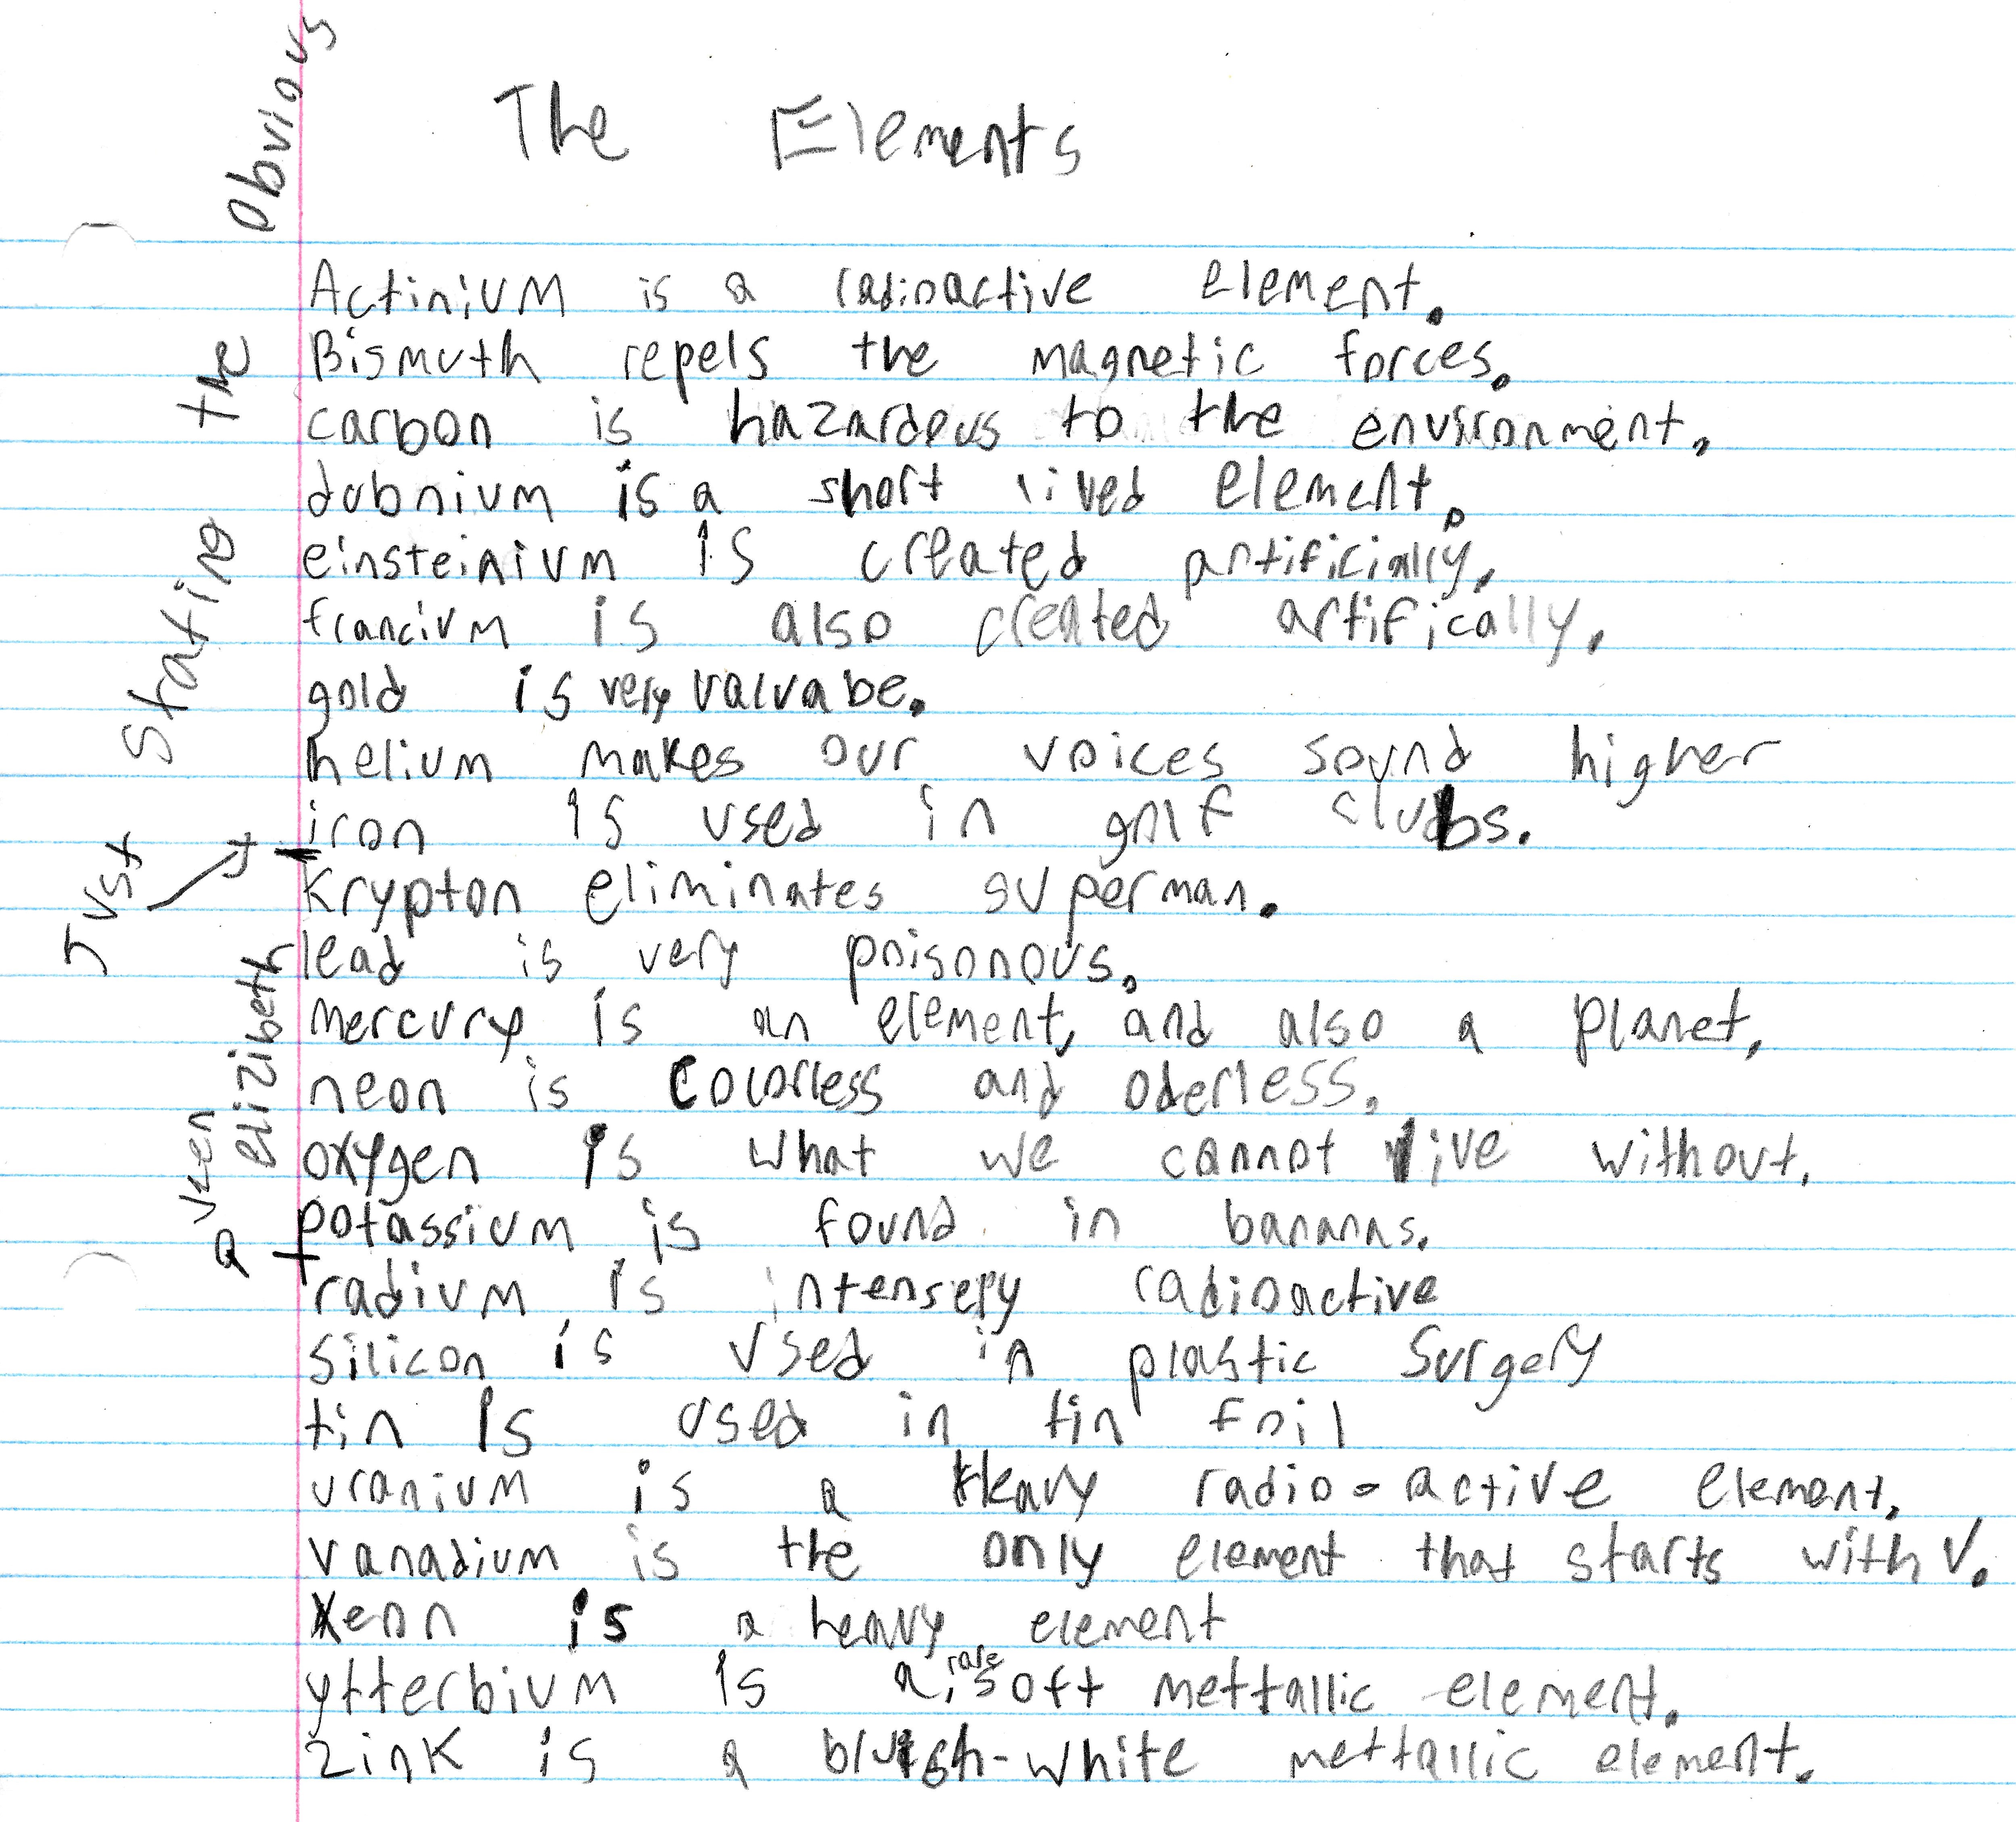 The Elements
Actinium is a radioactive element.
Bismuth repels the magnetic forces.
carbon is hazardeus to the environment.
dubnium is a short lived element.
einsteinium is created artificially.
francium is also created artifically.
gold is very valuabe.
helium makes our voices sound higher
iron is used in golf clubs.
Just Stating the Obvious
krypton eliminates superman.
lead is very poisonous.
mercury is an element, and also a planet.
neon is colorless and oderless.
oxygen is what we cannot live without.
potassium is found in bananas.
Queen elizibeth
radium is intensely radioactive
silicon is used in plastic surgery
tin is used in tin foil
uranium is a heavy radio-active element.
vanadium is the only element that starts with V.
xenon is a heavy element
ytterbium is a, rare soft mettallic element.
zink is a bluish-white mettallic element.